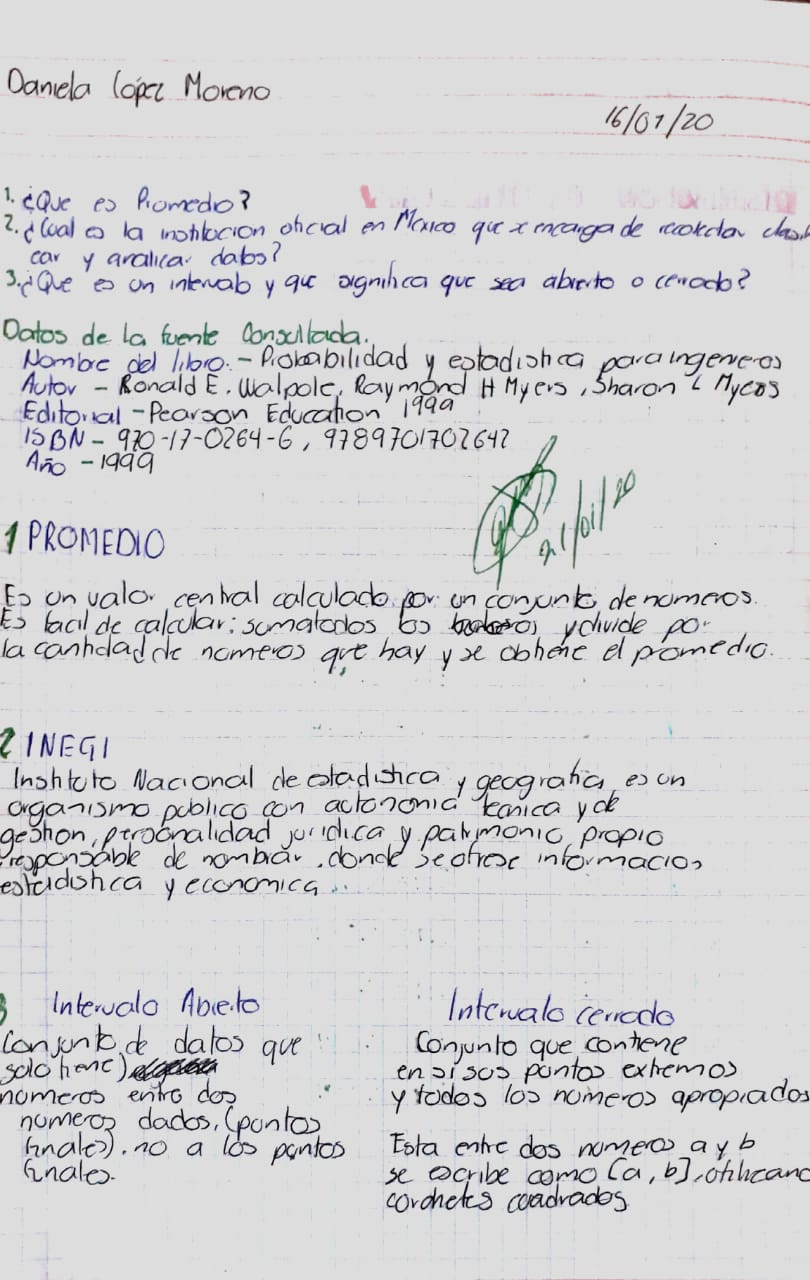 Daniela López Moreno
16/01/20
1. ¿Que es Promedio?
2. ¿Cual es la institucion oficial en México que se encarga de recolectar clasifi
car y analizar datos?
3. ¿Que es un intervalo y que significa que sea abierto o cerrado?
Datos de la fuente Consultada.
Nombre del libro. - Probabilidad y estadistica para ingenieros
Autor - Ronald E. Walpole, Raymond H Myers, Sharon L Myers
Editorial - Pearson Education 1999
ISBN - 970-17-0264-6, 9789701702642
Año - 1999
21/01/20
1 PROMEDIO
Es un valor central calculado por un conjunto de numeros.
Es facil de calcular: suma todos los y divide por
la cantidad de numeros que hay y se obtiene el promedio.
2 INEGI
Instituto Nacional de estadistica y geografia, es un
organismo publico con autonomia tecnica y de
gestion, personalidad juridica y patrimonio propio
responsable de nombrar, donde se ofrese informacion
estadistica y economica.
3 Intervalo Abierto
Conjunto de datos que
solo tiene)
numeros entre dos
numeros dados, (puntos
finales). no a los puntos
finales.
Intervalo cerrado
Conjunto que contiene
en si sus puntos extremos
y todos los numeros apropiados
Esta entre dos numeros a y b
se escribe como [a, b], utilizand
corchetes cuadrados